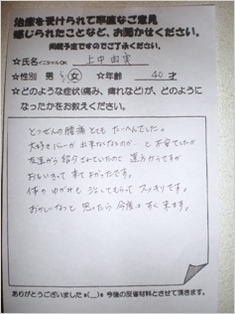 治療を受けられて率直なご意見
感じられたことなど、お聞かせください。
掲載予定ですのでご了承ください。
☆氏名 イニシャルOK 上中由実
☆性別 男・女 ☆年齢 40才
☆どのような症状(痛み、痺れなど)が、どのように
なったかをお教えください。
とつぜんの腰痛でとても たいへんでした。
大好きなバレーが 出来なくなるのか… と不安でしたが
友達から紹介されていたので 遠方からですが
おもいきって 来て よかったです。
体の ゆがみも 治してもらって スッキリです。
おかしいなっと 思ったら 今度は すぐ 来ます。
ありがとうございました m(__)m 今後の反省材料とさせて頂きます。